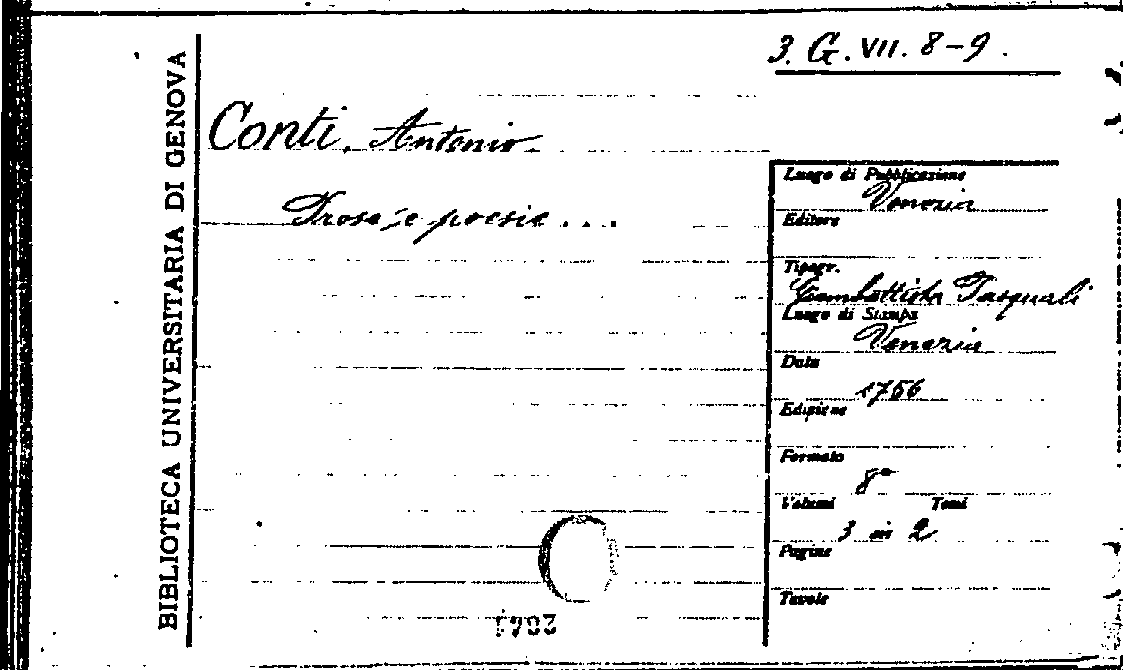 BIBLIOTECA UNIVERSITARIA DI GENOVA
3. G. VII. 8-9.
Conti, Antonio.
Prose e poesie ...
Luogo di Pubblicazione
Venezia
Editore
Tipogr.
Giambattista Pasquali
Luogo di Stampa
Venezia
Data
1756
Edizione
Formato
8°
Volumi Tomi
3 in 2
Pagine
Tavole